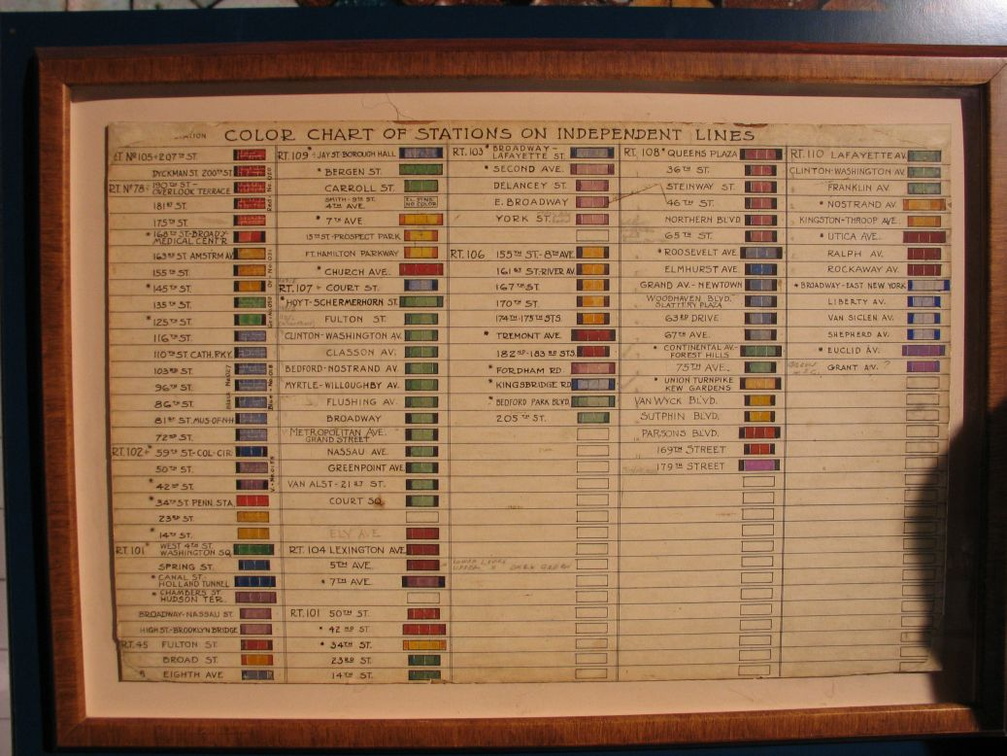 COLOR CHART OF STATIONS ON INDEPENDENT LINES
RT. Nº105 207TH ST.
DYCKMAN ST. 200TH ST.
RT. Nº78 190TH ST-
OVERLOOK TERRACE
181ST ST.
175TH ST.
* 168TH ST-BROADY-
MEDICAL CENT'R
163RD ST. AMSTRM AV
155TH ST.
* 145TH ST.
135TH ST.
* 125TH ST.
116TH ST.
110TH ST. CATH. P'K'Y.
103RD ST.
96TH ST.
86TH ST.
81ST ST. MUS-OF-NH
72ND ST.
RT.102 * 59TH ST-COL-CIR.
50TH ST.
* 42ND ST.
* 34TH ST. PENN STA.
23RD ST.
* 14TH ST.
RT.101 * WEST 4TH ST.
WASHINGTON SQ.
SPRING ST.
* CANAL ST-
HOLLAND TUNNEL
* CHAMBERS ST.
HUDSON TER.
BROADWAY-NASSAU ST.
HIGH ST-BROOKLYN BRIDGE
RT.45 FULTON ST.
BROAD ST.
EIGHTH AVE
RT.109 * JAY ST-BOROUGH HALL
* BERGEN ST.
CARROLL ST.
SMITH-9TH ST.
4TH AVE.
* 7TH AVE.
15TH ST-PROSPECT PARK
FT. HAMILTON PARKWAY
* CHURCH AVE.
RT.107 COURT ST.
* HOYT-SCHERMERHORN ST.
FULTON ST.
CLINTON-WASHINGTON AV.
CLASSON AV.
BEDFORD-NOSTRAND AV.
MYRTLE-WILLOUGHBY AV.
FLUSHING AV.
BROADWAY
METROPOLITAN AVE.
GRAND STREET
NASSAU AVE.
GREENPOINT AVE.
VAN ALST-21ST ST.
COURT SQ.
ELY AVE.
RT. 104 LEXINGTON AVE.
5TH AVE.
* 7TH AVE.
RT.101 50TH ST.
* 42ND ST.
* 34TH ST.
23RD ST.
14TH ST.
RT.103 * BROADWAY-
LAFAYETTE ST.
* SECOND AVE.
DELANCEY ST.
E. BROADWAY
YORK ST.
RT.106 155TH ST.-8TH AVE.
161ST ST-RIVER AV.
167TH ST.
170TH ST.
174TH-175TH STS.
* TREMONT AVE.
182ND-183RD STS.
* FORDHAM RD.
* KINGSBRIDGE RD.
* BEDFORD PARK BLVD.
205TH ST.
RT. 108 * QUEENS PLAZA
36TH ST.
STEINWAY ST.
46TH ST.
NORTHERN BLVD.
65TH ST.
* ROOSEVELT AVE.
ELMHURST AVE.
GRAND AV.-NEWTOWN
WOODHAVEN BLVD.
SLATTERY PLAZA
63RD DRIVE
67TH AVE.
* CONTINENTAL AV.-
FOREST HILLS
75TH AVE.
* UNION TURNPIKE
KEW GARDENS
VAN WYCK BLVD.
SUTPHIN BLVD.
PARSONS BLVD.
169TH STREET
179TH STREET
RT. 110 LAFAYETTE AV.
CLINTON-WASHINGTON AV.
FRANKLIN AV.
* NOSTRAND AV.
KINGSTON-THROOP AVE.
* UTICA AVE.
RALPH AV.
ROCKAWAY AV.
* BROADWAY-EAST NEW YORK
LIBERTY AV.
VAN SICLEN AV.
SHEPHERD AV.
* EUCLID AV.
GRANT AV. ?